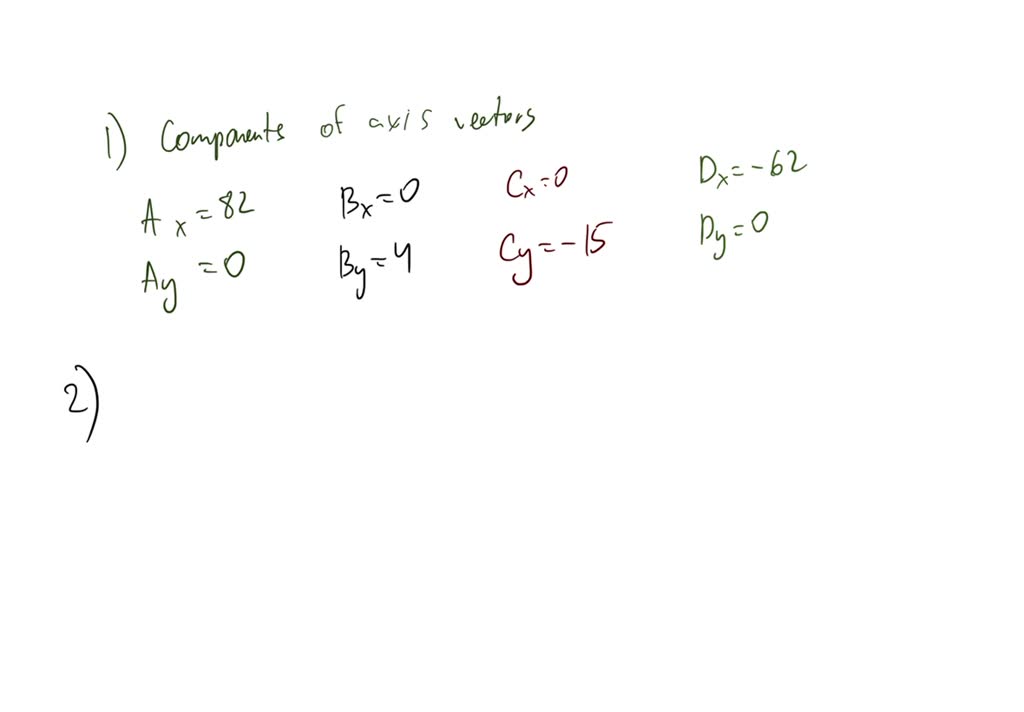 1) Components of axis vectors
Ax = 82 Bx = 0 Cx = 0 Dx = -62
Ay = 0 By = 4 Cy = -15 Dy = 0
2)